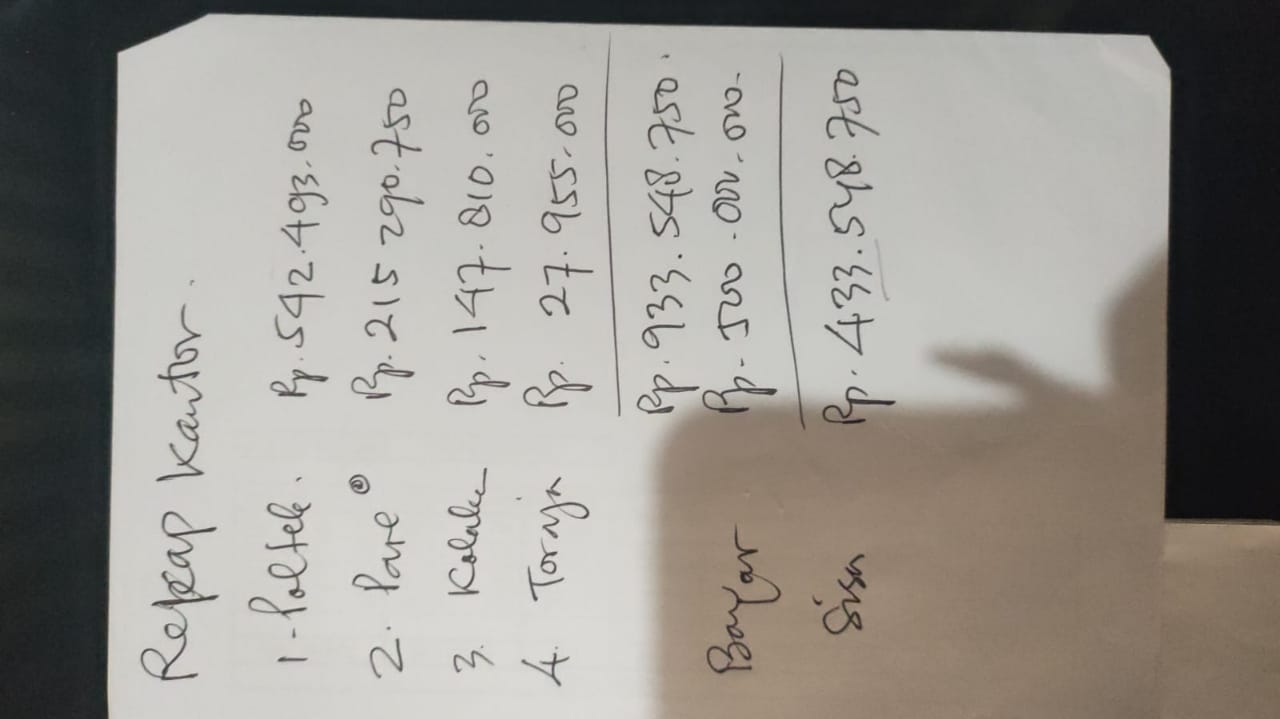 Repcap Kantor.
1- Poltek. Rp. 542.493.000
2. Pare ② Rp. 215 290.750
3. Kolaka Rp. 147.810.000
4. Toraja Rp. 27.955.000
Rp. 933.548.750.
Bayar Rp. 500.000.000-
Sisa Rp. 433.548.750